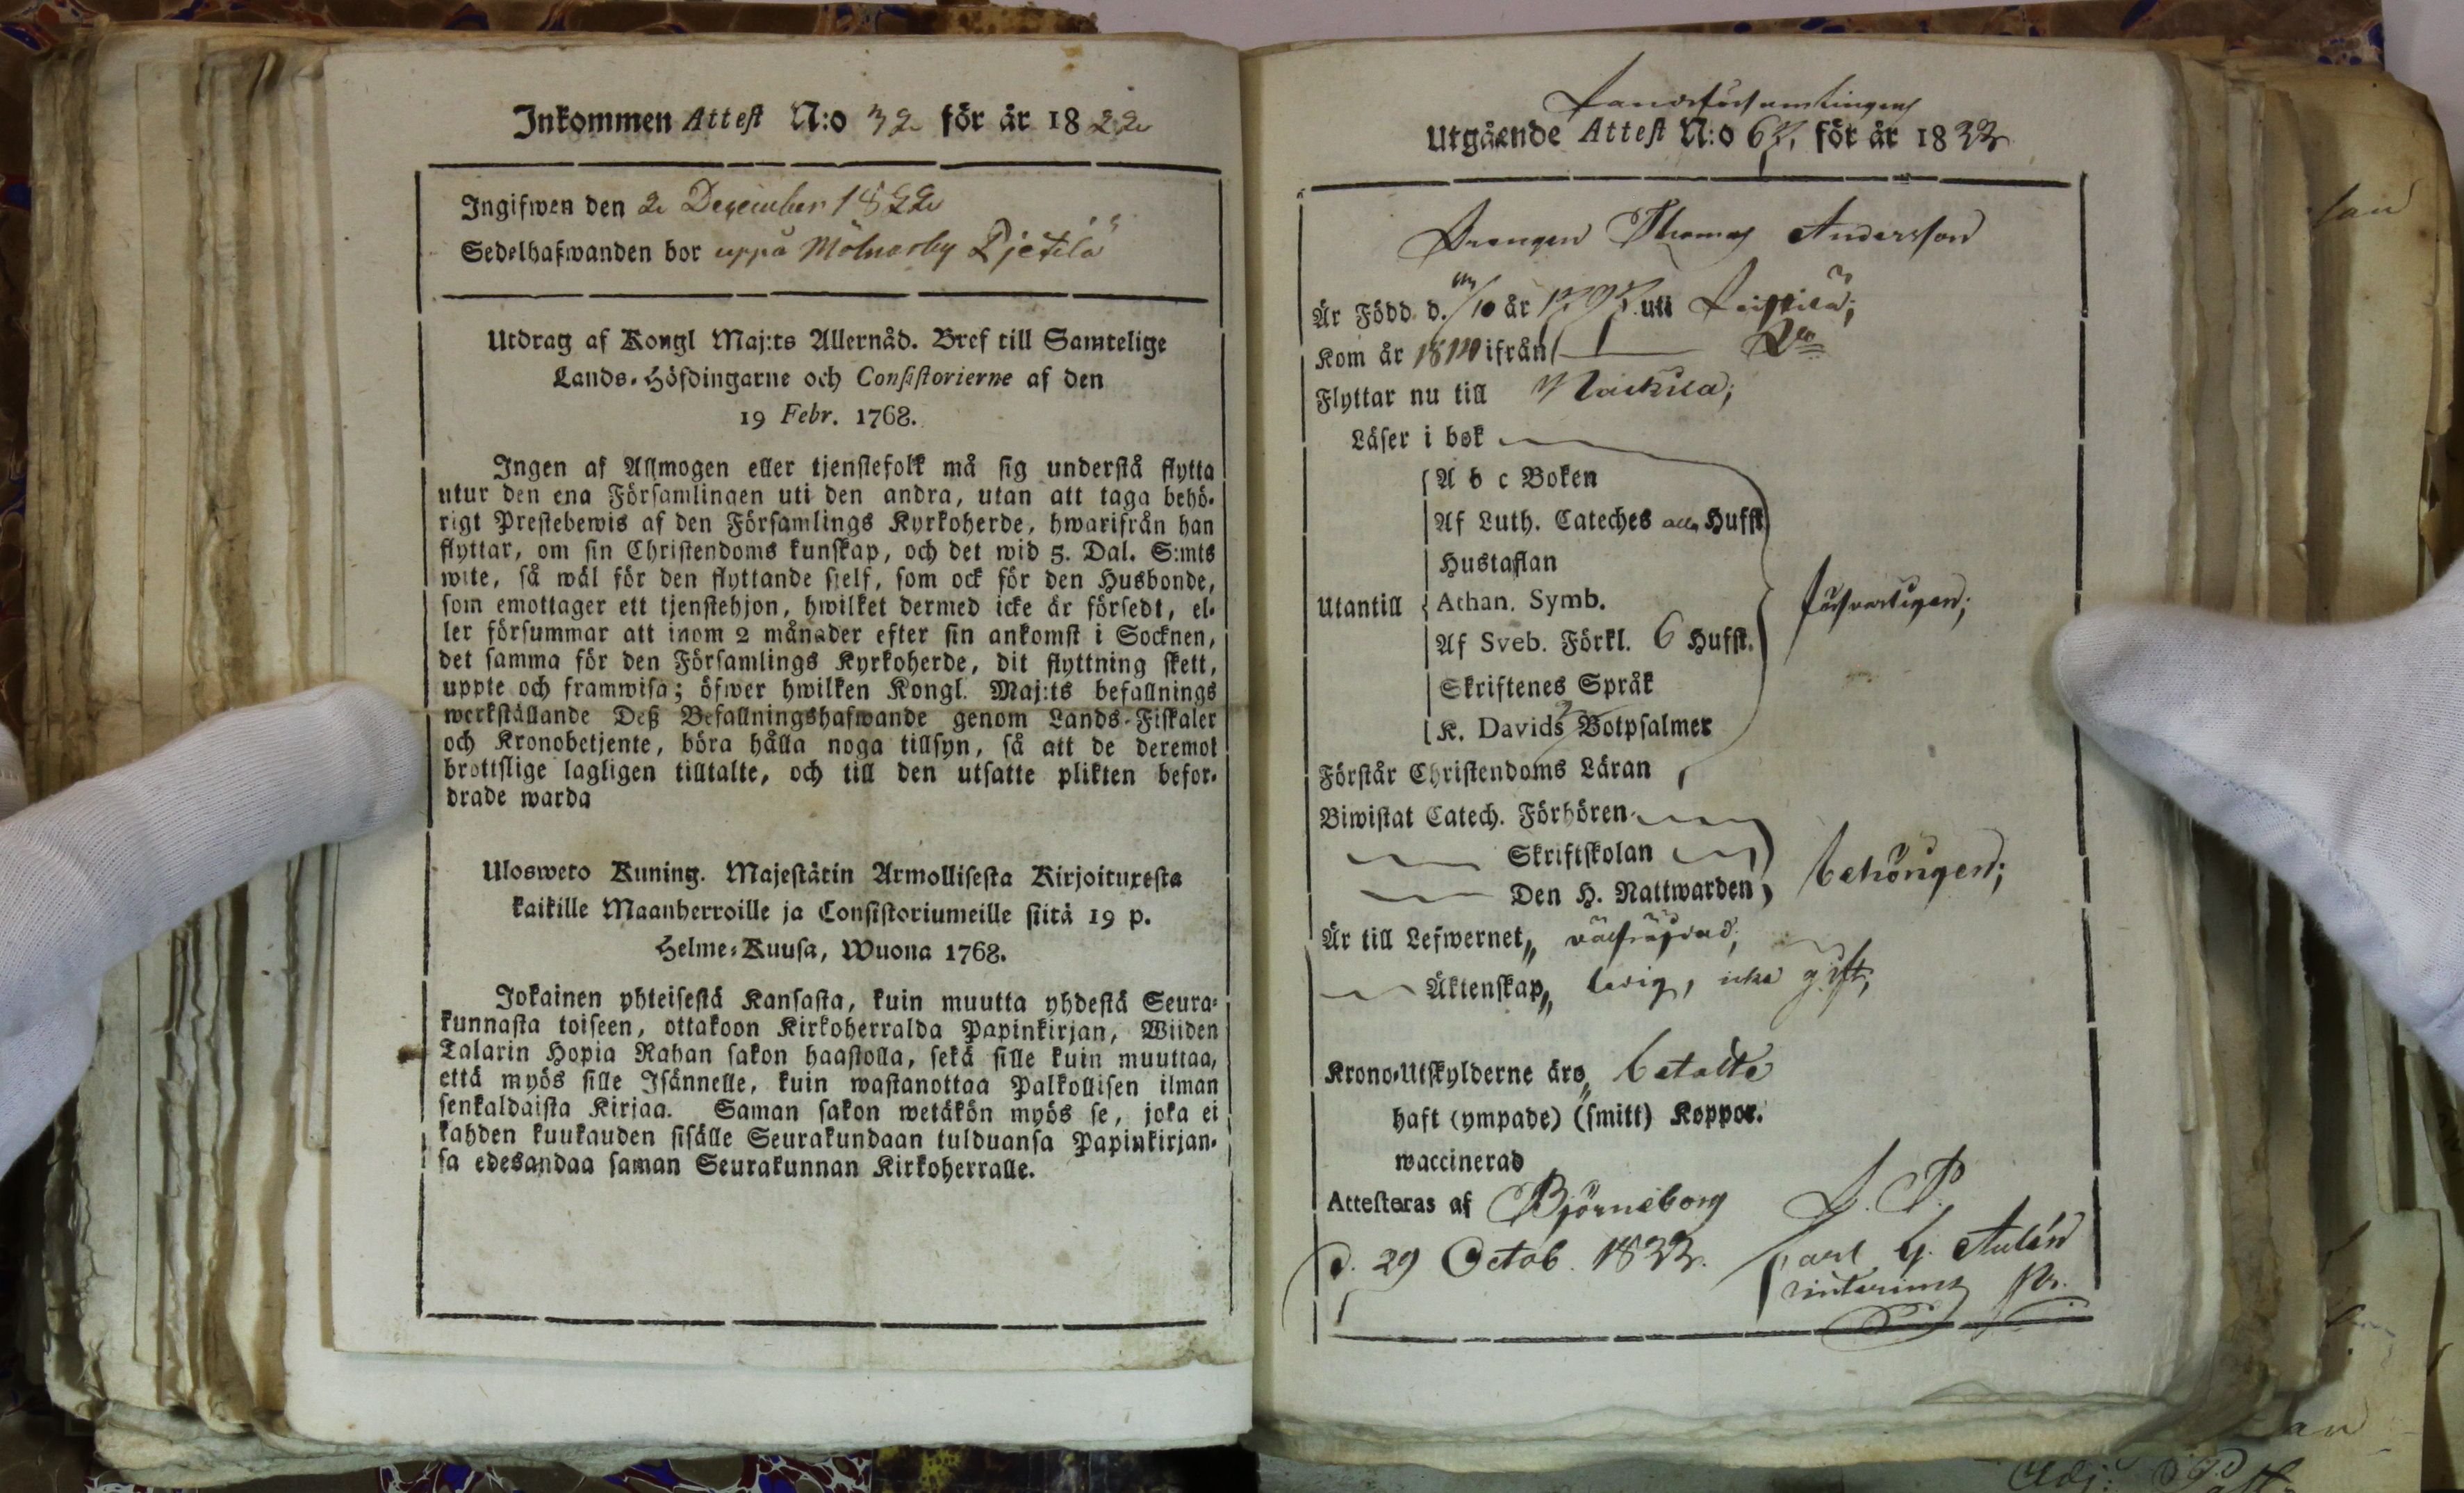 Inkommen Attest N:o 32 för år 1822
Ingifwen den 2 December 1822
Sedelhafwanden bor uppå
Utdrag af Kongl Maj:ts Allernåd. Bref till Samtelige
Lands-Höfdingarne och Consistorierne af den
19 Febr. 1768.
Ingen af Allmogen eller tjenstefolk må sig understå flytta
utur den ena Församlingen uti den andra, utan att taga behö-
rigt Prestebewis af den Församlings Kyrkoherde, hwarifrån han
flyttar, om sin Christendoms kunskap, och det wid 5. Dal. S:mts
wite, så wäl för den flyttande sjelf, som ock för den Husbonde,
som emottager ett tjenstehjon, hwilket dermed icke är försedt, el-
ler försummar att inom 2 månader efter sin ankomst i Socknen,
det samma för den Församlings Kyrkoherde, dit flyttning skett,
uppte och framwisa; öfwer hwilken Kongl. Maj:ts befallnings
werkställande Deß Befallningshafwande genom Lands-Fiskaler
och Kronobetjente, böra hålla noga tillsyn, så att de deremot
brottslige lagligen tilltalte, och till den utsatte plikten befor-
drade warda
Ulosweto Kuning. Majestätin Armollisesta Kirjoituxesta
kaikille Maanherroille ja Consistoriumeille siitä 19 p.
Helme-Kuusa, Wuona 1768.
Jokainen yhteisestä Kansasta, kuin muutta yhdestä Seura-
kunnasta toiseen, ottakoon Kirkoherralda Papinkirjan, Wiiden
Talarin Hopia Rahan sakon haastolla, sekä sille kuin muuttaa,
että myös sille Isännelle, kuin wastanottaa Palkollisen ilman
senkaldaista Kirjaa. Saman sakon wetäkön myös se, joka ei
kahden kuukauden sisälle Seurakundaan tulduansa Papinkirjan-
sa edesandaa saman Seurakunnan Kirkoherralle.
Landsförsamlingens
Utgående Attest N:o för år 1833
Drengen Thomas Andersson
Är Född d. /10 år 1797 uti
Kom år ifrån
Flyttar nu till
Läser i bok
A b c Boken
Af Luth. Cateches alla Hufst
Hustaflan
Utantill Athan. Symb. försvarligen;
Af Sveb. Förkl. 6 Hufst.
Skriftenes Språk
K. Davids Botpsalmer
Förstår Christendoms Läran
Biwistat Catech. Förhören
Skriftskolan behörigen;
Den H. Nattwarden
Är till Lefwernet välfräjdad;
Äktenskap, ledig, icke gift,
Krono-Utskylderne äro betalte
haft (ympade) (smitt) Koppor.
waccinerad
Attesteras af Björneborg
d. 29 Octob. 1833.
Carl G. Aulén
interims